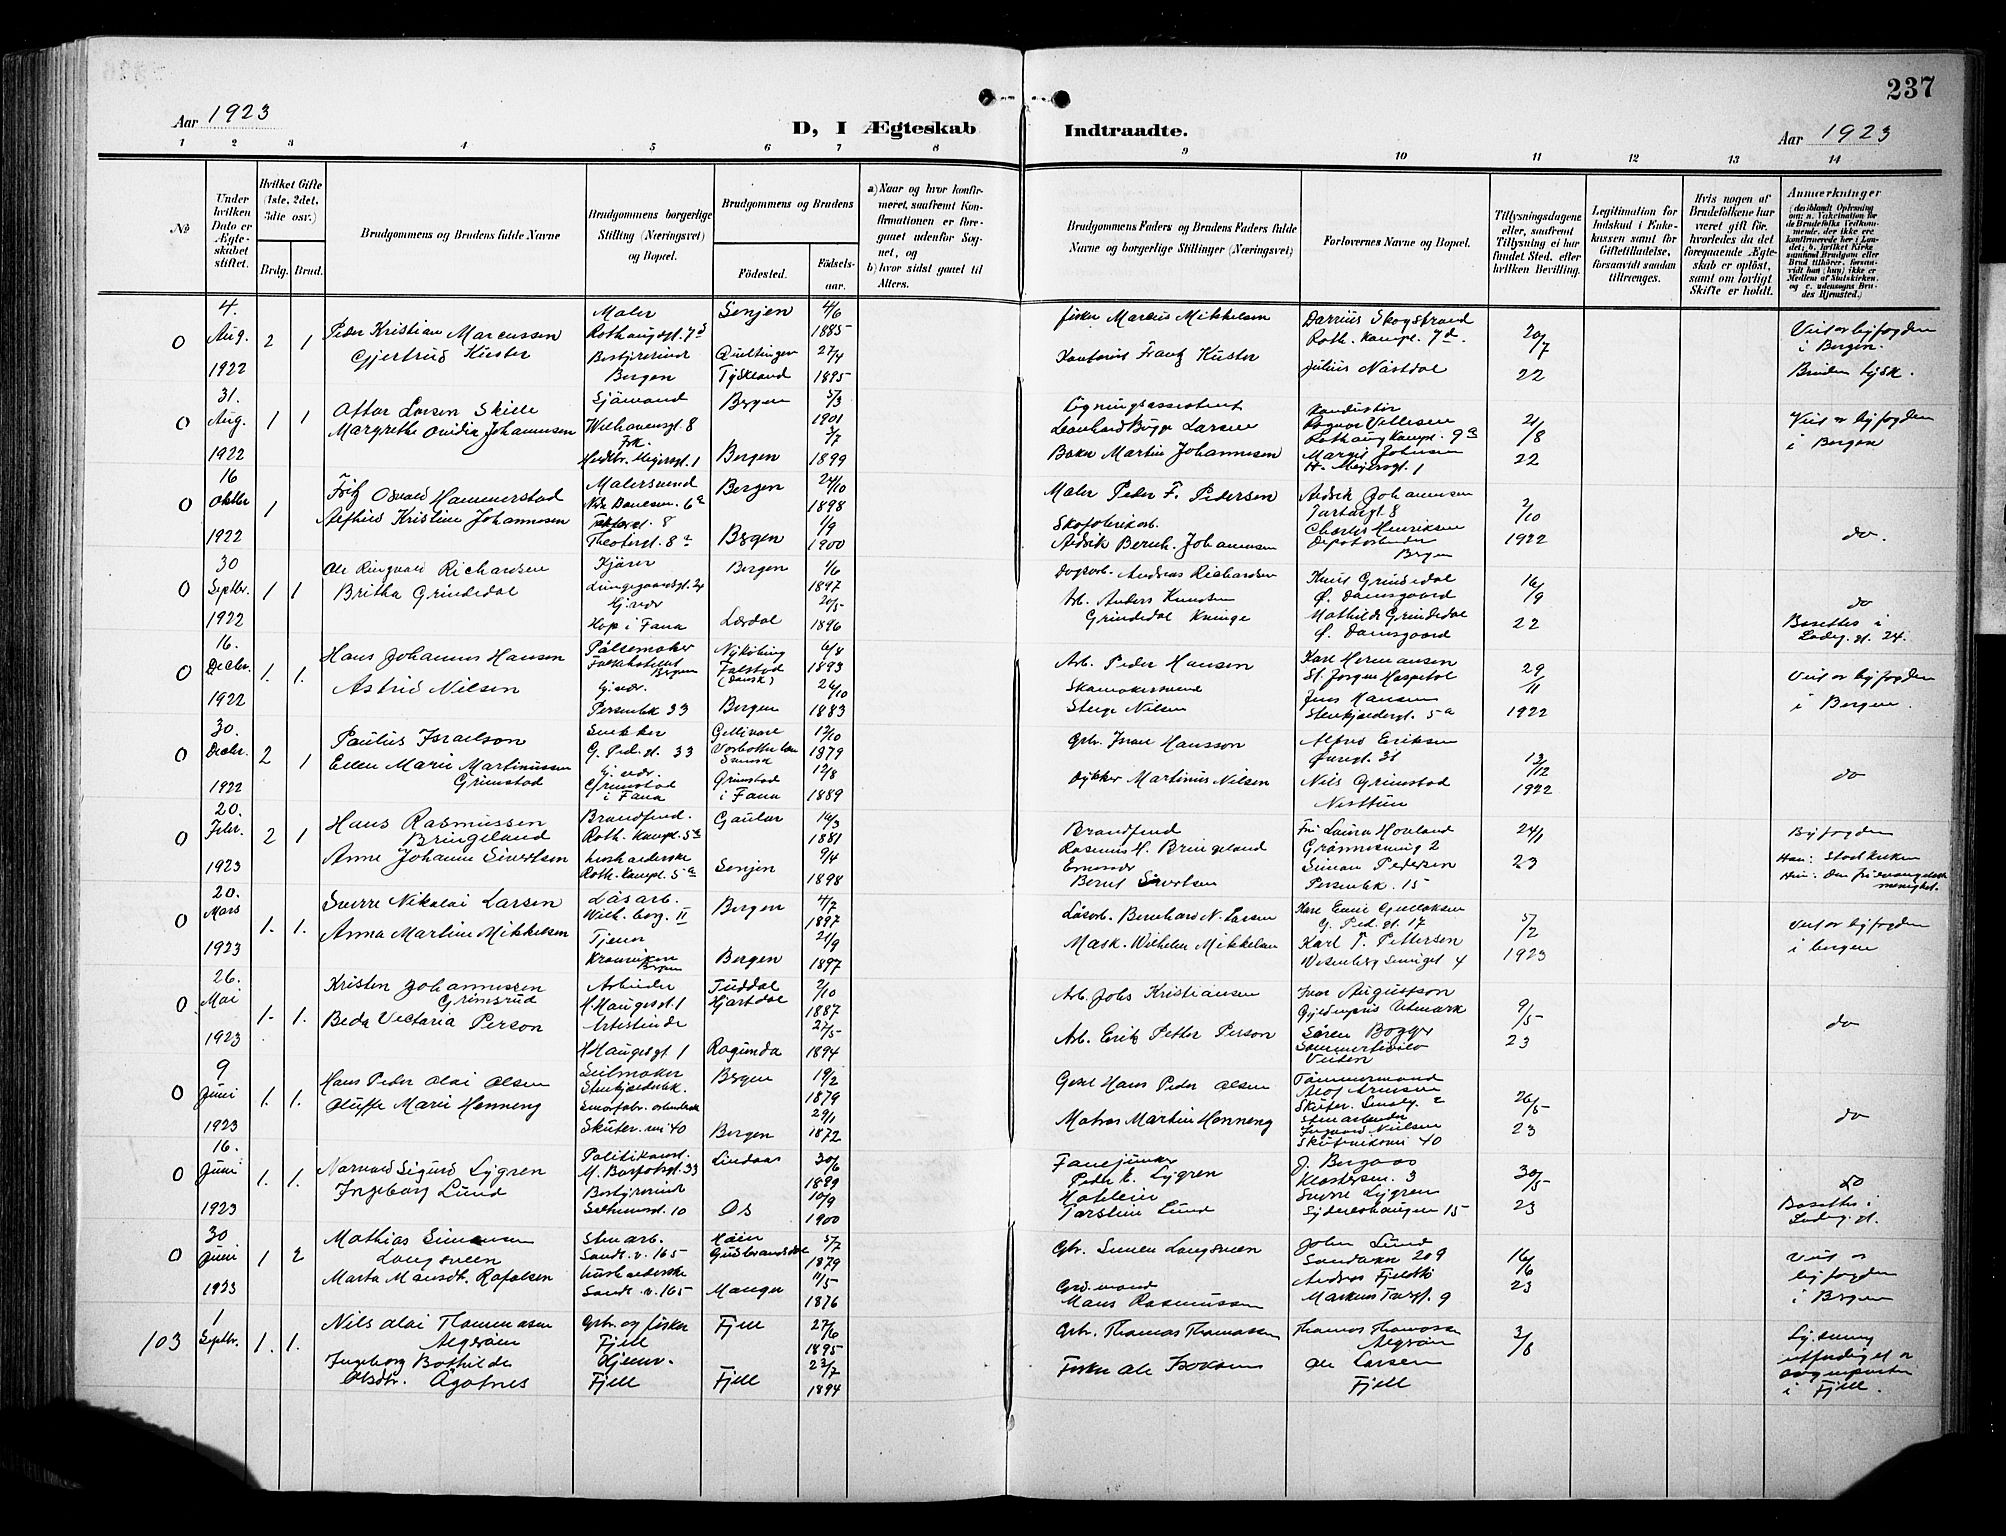 237
Aar 1923
D, I Ægteskab Indtraadte.
Aar 1923
1 2 3 4 5 6 7 8 9 10 11 12 13 14
No
Under hvilken Dato er Ægteskabet stiftet.
Hvilket Gifte (1ste, 2det, 3die osv.)
Brdg. Brud.
Brudgommens og Brudens fulde Navne
Brudgommens borgerlige Stilling (Næringsvei) og Bopæl.
Brudgommens og Brudens
Födested.
Födselsaar.
a) Naar og hvor konfirmeret, saafremt Konfirmationen er foregaaet udenfor Sognet, og
b) hvor sidst gaaet til Alters.
Brudgommens Faders og Brudens Faders fulde Navne og borgerlige Stillinger (Næringsvei)
Forlovernes Navne og Bopæl.
Tillysningsdagene eller, saafremt Tillysning ei har fundet Sted, efter hvilken Bevilling.
Legitimation for Indskud i Enkekassen samt for Giftetilladelse, forsaavidt saadan tiltrænges.
Hvis nogen af Brudefolkene har været gift før, hvorledes da det foregaaende Ægteskab er opløst, samt om lovligt Skifte er holdt.
Anmærkninger
0 4. Aug. 1922 2 1
Peder Kristian Marcussen
Gjertrud Küster
Maler
Rothaugsgt. 7d
Bestyrerinde
Bergen
Senjen 4/6 1885
Tyskland 27/4 1895
Fisker Marcus Mikkelsen
Kantorist Frantz Küster
Darrius Skogstrand
Roth. Kampl. 7d.
Julius Nastdal
20/7 22
Viet av byfogden
i Bergen.
Bruden tysk.
0 31. Aug. 1922 1 1
Ottar Larsen Skille
Margrethe Ovidia Johannesen
Sjömand
Welhavensgt. 8
Frk.
Bergen 5/3 1901
Bergen 7/7 1899
Ligningsassistent
Leonhard Bugge Larsen
Baker Martin Johannesen
Rothaug Kampl. 9a
Margit Johnsen
H. Meijersgt. 1
21/8 22
Viet av byfogden
i Bergen
0 16 Oktbr 1922 1
Fritz Osvald Hammerstad
Alfhild Kristine Johannesen
Malersvend
Theatergt. 8a
Bergen 24/10 1898
Bergen 1/9 1900
Maler Peder F. Pedersen
Skofabrikarb.
Aldrik Bernh. Johannesen
Aldrik Johannesen
Charles Henriksen
Bergen
2/10 1922
do.
0 30 Septbr. 1922 1 1
Ole Ringvard Richardsen
Britha Grindedal
Kjörer
Lungegaardsgt. 24
Hj. vær
Hop i Fana
Bergen 1/6 1897
Lærdal 20/5 1896
Dagarb. Andreas Richardsen
Arb. Anders Knudsen
Grindedal Kninge
Knut Grindedal
Ö. Damsgaard
Mathilde Grindedal
Ö. Damsgaard
16/9 22
do
Bosettes i
Ladeg. gt. 24.
0 16. Decbr. 1922 1. 1.
Hans Johannes Hansen
Astrid Nilsen
Pölsemaker
Folkehotellet
Bergen
Hj. vær.
Persenbk 33
Nyköbing
Falstad
(Dansk) 6/4 1893
Bergen 26/10 1883
Arb. Peder Hansen
Skomakersvend
Sterge Nilsen
Karl Hermansen
St. Jörgens Hospital
Jens Hansen
Stenkjeldergt. 5a
29/11 1922
Viet av byfogden
i Bergen.
0 30. Decbr. 1922 2 1
Paulus Israelson
Ellen Marie Martinussen
Grimstad
Snekker
G. Ped. gt. 33
Hj. vær.
Grimstad
i Fana
Gellivare
12/10 1879
Grimstad
i Fana 12/8 1889
Gbr. Israel Hansson
Dykker Martinus Nilsen
Alfred Eriksen
Övregt. 31
Nils Grimstad
Nesttun
13/12 1922
do
0 20. Febr. 1923 2 1
Hans Rasmussen
Bringeland
Anne Johanne Sivertsen
Brandfund.
Roth. Kampl. 5a
husholderske
Roth. Kampl. 5a
Gaular 16/3 1881
Senjen 9/4 1898
Brandfund
Rasmus H. Bringeland
Bernt Sivertsen
Fru Laura Hovland
Grönnesmug 2
Simon Pedersen
Persenbk. 15
24/1 23
Byfogden
Han: Statskirken
Hun: Den frievangeliske
menighet.
0 20. Mars 1923 1. 1.
Sverre Nikolai Larsen
Anna Martine Mikkelsen
Lösarb.
Wilh. borg. II
Tjener
Kronviken
Bergen
Bergen 4/7 1897
Bergen 21/9 1897
Lösarb. Bernhard N. Larsen
Mask. Wilhelm Mikkelsen
Karl Emil Gullaksen
G. Ped. gt. 17
Karl T. Pettersen
Wesenberg Smuget 4
5/2 1923
Viet av byfogden
i bergen
0 26. Mai 1923 1. 1.
Kristen Johannessen
Grimsrud
Beda Victaria Person
Arbeider
H. Haugesgt. 1
Artistinde
H. Haugesgt 1
Tuddal
Hjartdal 2/10 1887
Ragunda 27/5 1894
Arb. Johs Kristiansen
Arb. Erik Petter Person
Ivar Augustson
Sören Bogger
9/5 23
do
0 9 Juni 1923 1. 1.
Hans Peder Olai Olsen
Oluffe Marie Henneng
Seilmaker
Stenkjelderbk.
Skuter. vei 40
Bergen 19/2 1879
Bergen 29/1 1872
Gesel Hans Peder Olsen
Matros Martin Henneng
Tömmermand
Stenarbeider
Ingvard Nielsen
Skuteviksvei 40
26/5 23
do
0 16. Juni 1923 1. 1.
Norvald Sigurd Lygren
Ingeborg Lund
Politikonst.
M. Barfotsgt. 33
Bestyrerinde
Solheimsgt. 10
Lindaas 30/6 1899
Os 10/9 1900
Fanejunker
Peder E. Lygren
Hoteleier
Torstein Lund
J. Bergaas
Klostersm. 3
Sverre Lygren
Sydneshaugen 15
30/5 23
do
Bosettes i
Ladeg. gt.
0 30 Juni 1923 1 2
Mathias Simensen
Langsveen
Marta Mansdt. Rafalsen
Stenarb.
Sandv. v. 165
husholderske
Sandv. v. 165
Gudbrandsdal 5/7 1879
Manger 11/5 1876
Gbr. Simen Langsveen
Grd.mand
Mans Rasmussen
John Lund
Sandvikv 209
Andreas Fjeldsbö
Markus Torvgt. 9
16/6 23
Viet av
byfogden
i Bergen
103 1 Septbr. 1. 1.
Nils Olai Thomassen
Algröen
Ingeborg Bothilde
Olsdtr. Ågotnes
Gbr. og fisker
Fjell
Hjemv.
Fjell
Fjell 27/6 1895
Fjell 23/7 1894
Gbr. Thomas Thomassen
Fisker Ole Isaksen
Thomas Thomassen
Algröen
Ole Larsen
Fjell
3/8
Lysning
utferdiget av
sognepresten
i Fjell.